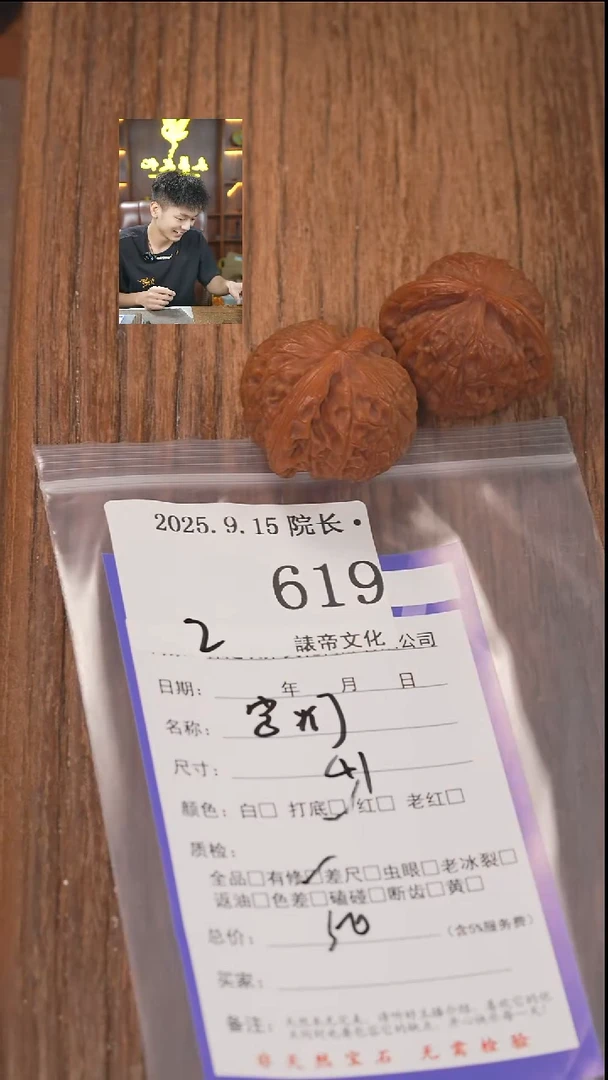 2025.9.15 院长·
619
2
誺帝文化 公司
日期: 年 月 日
名称:
尺寸: 41
颜色: 白□ 打底□ 红□ 老红□
质检:
全品□有修□差尺□虫眼□老冰裂□
返油□色差□磕碰□断齿□黄□
总价: (含5%服务费)
买家:
备注:
非天然宝石 无需检验